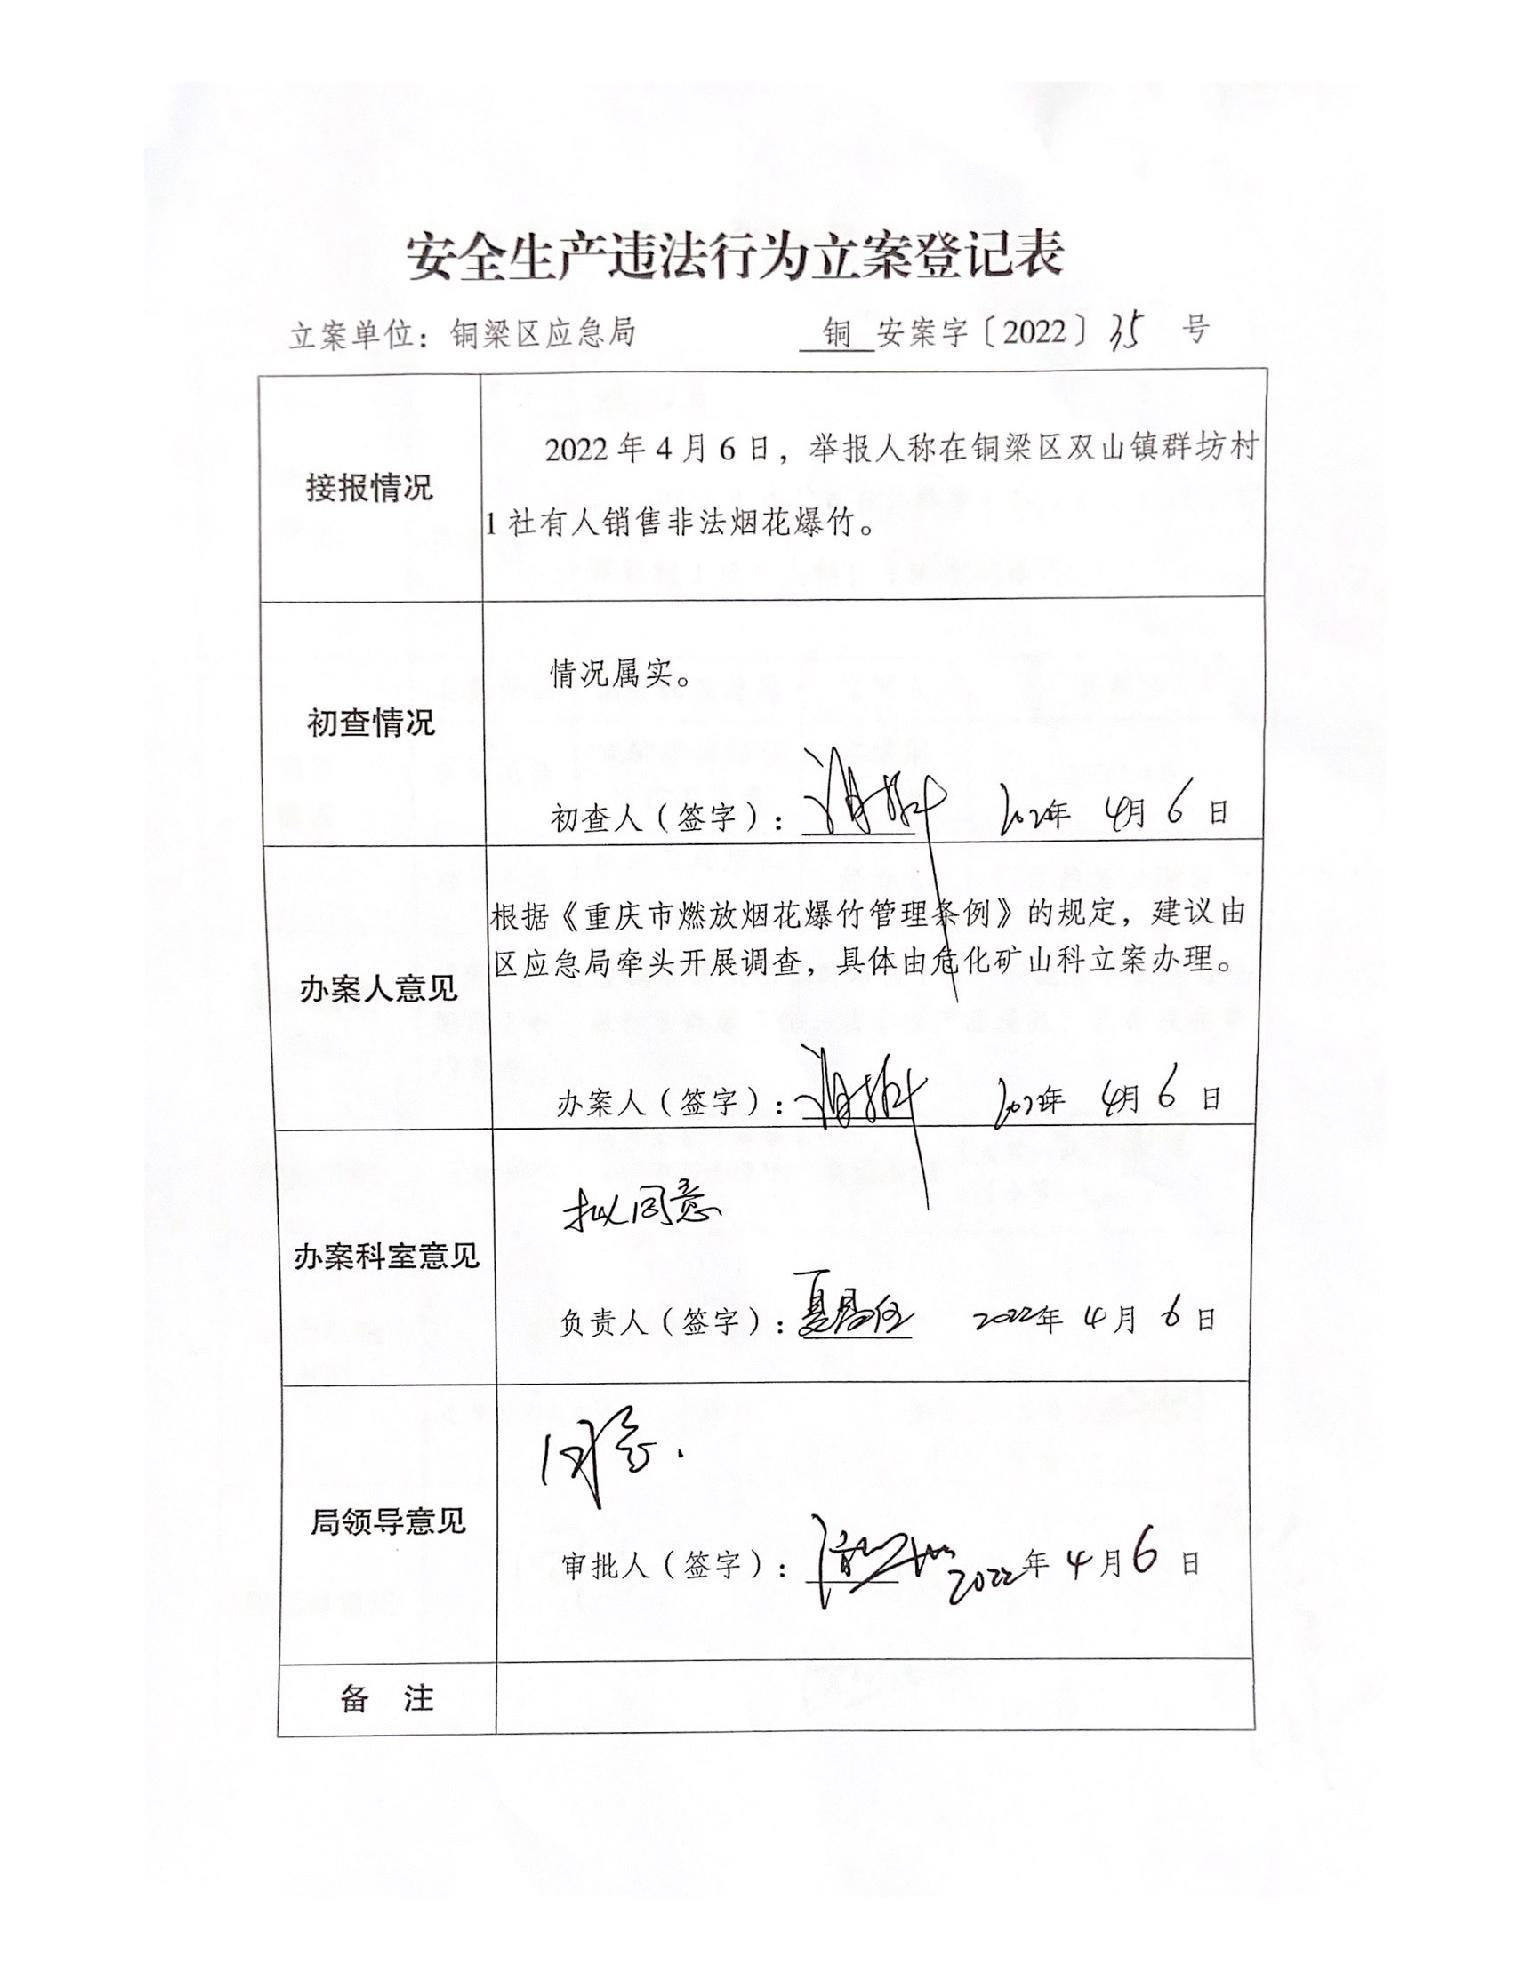 安全生产违法行为立案登记表
立案单位：铜梁区应急局 铜 安案字〔2022〕35 号
接报情况
2022年4月6日，举报人称在铜梁区双山镇群坊村
1社有人销售非法烟花爆竹。
初查情况
情况属实。
初查人（签字）： 2022年 4月 6 日
办案人意见
根据《重庆市燃放烟花爆竹管理条例》的规定，建议由
区应急局牵头开展调查，具体由危化矿山科立案办理。
办案人（签字）： 2022年 4月 6 日
办案科室意见
拟同意
负责人（签字）： 2022年 4月 6日
局领导意见
同意.
审批人（签字）： 2022年4月6日
备 注